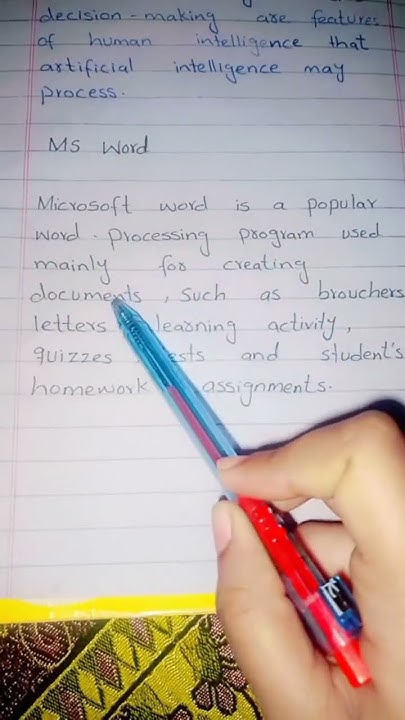 decision-making are features
of human intelligence that
artificial intelligence may
process.
MS Word
Microsoft word is a popular
word processing program used
mainly for creating
documents, such as brouchers
letters learning activity,
quizzes and student's
homework assignments.